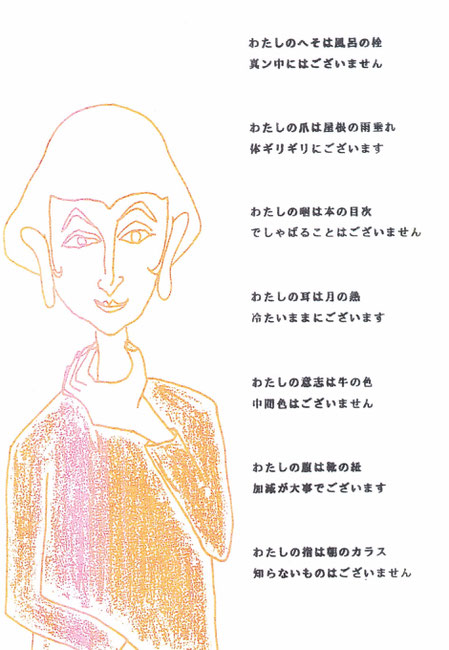 わたしのへそは風呂の栓
真ン中にはございません
わたしの爪は屋根の雨垂れ
体ギリギリにございます
わたしの咽は本の目次
でしゃばることはございません
わたしの耳は月の熱
冷たいままにございます
わたしの意志は牛の色
中間色はございません
わたしの腹は靴の紐
加減が大事でございます
わたしの指は朝のカラス
知らないものはございません